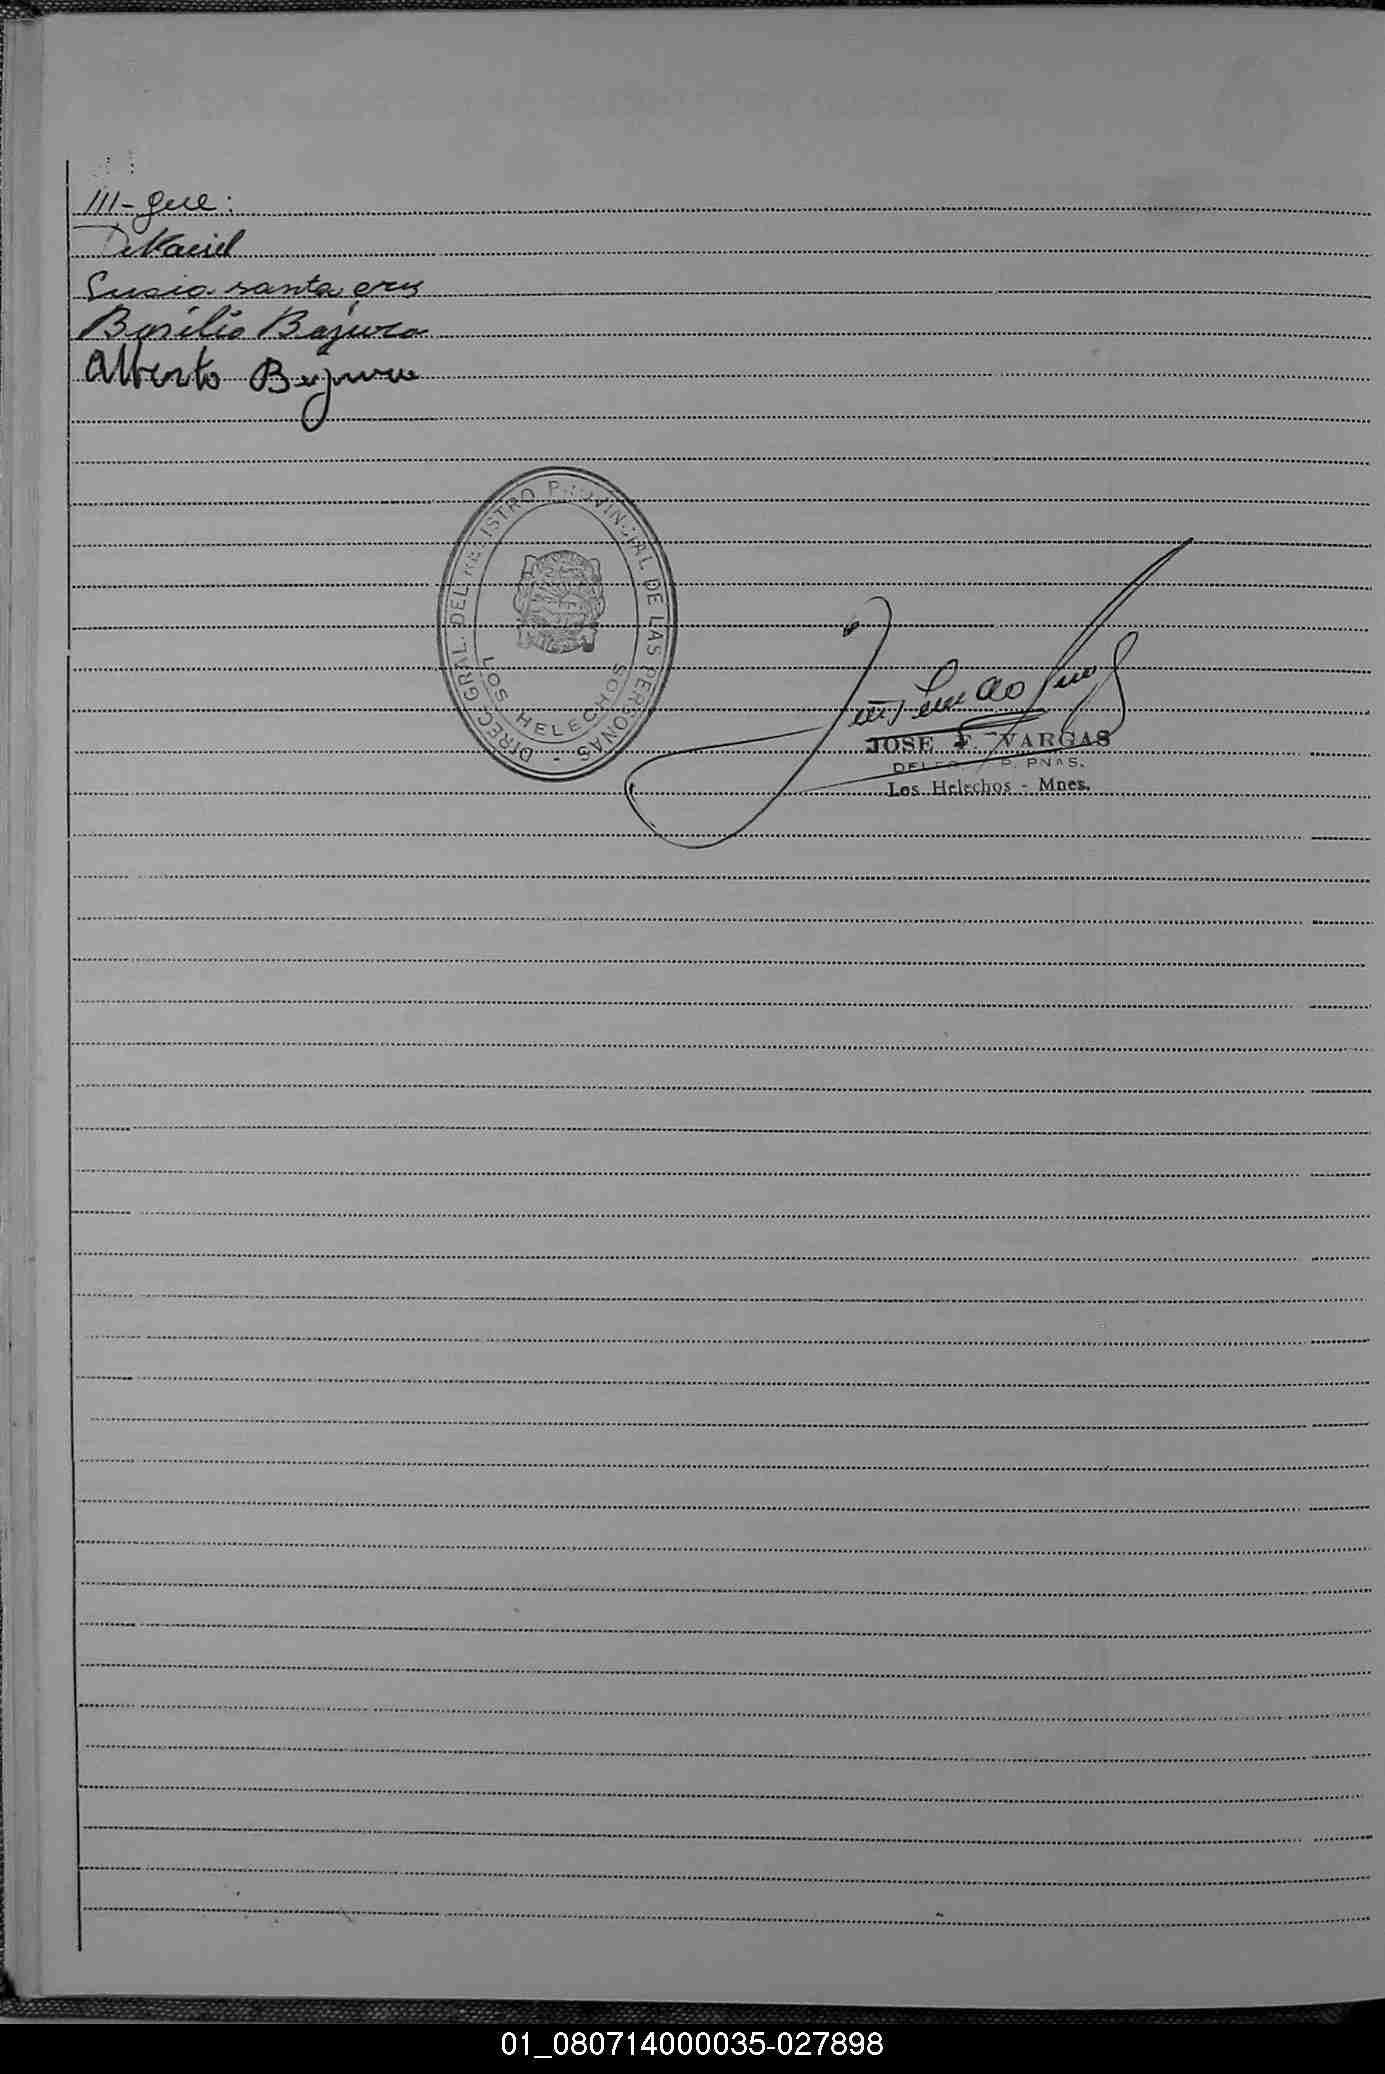 III-gue:
Lucia santa cruz
Basilio Bajura
Alberto Bajura
DIREC. GRAL. DEL REGISTRO PROVINCIAL DE LAS PERSONAS -
LOS HELECHOS
JOSE F. VARGAS
P. PNAS.
Los Helechos - Mnes.
01_080714000035-027898